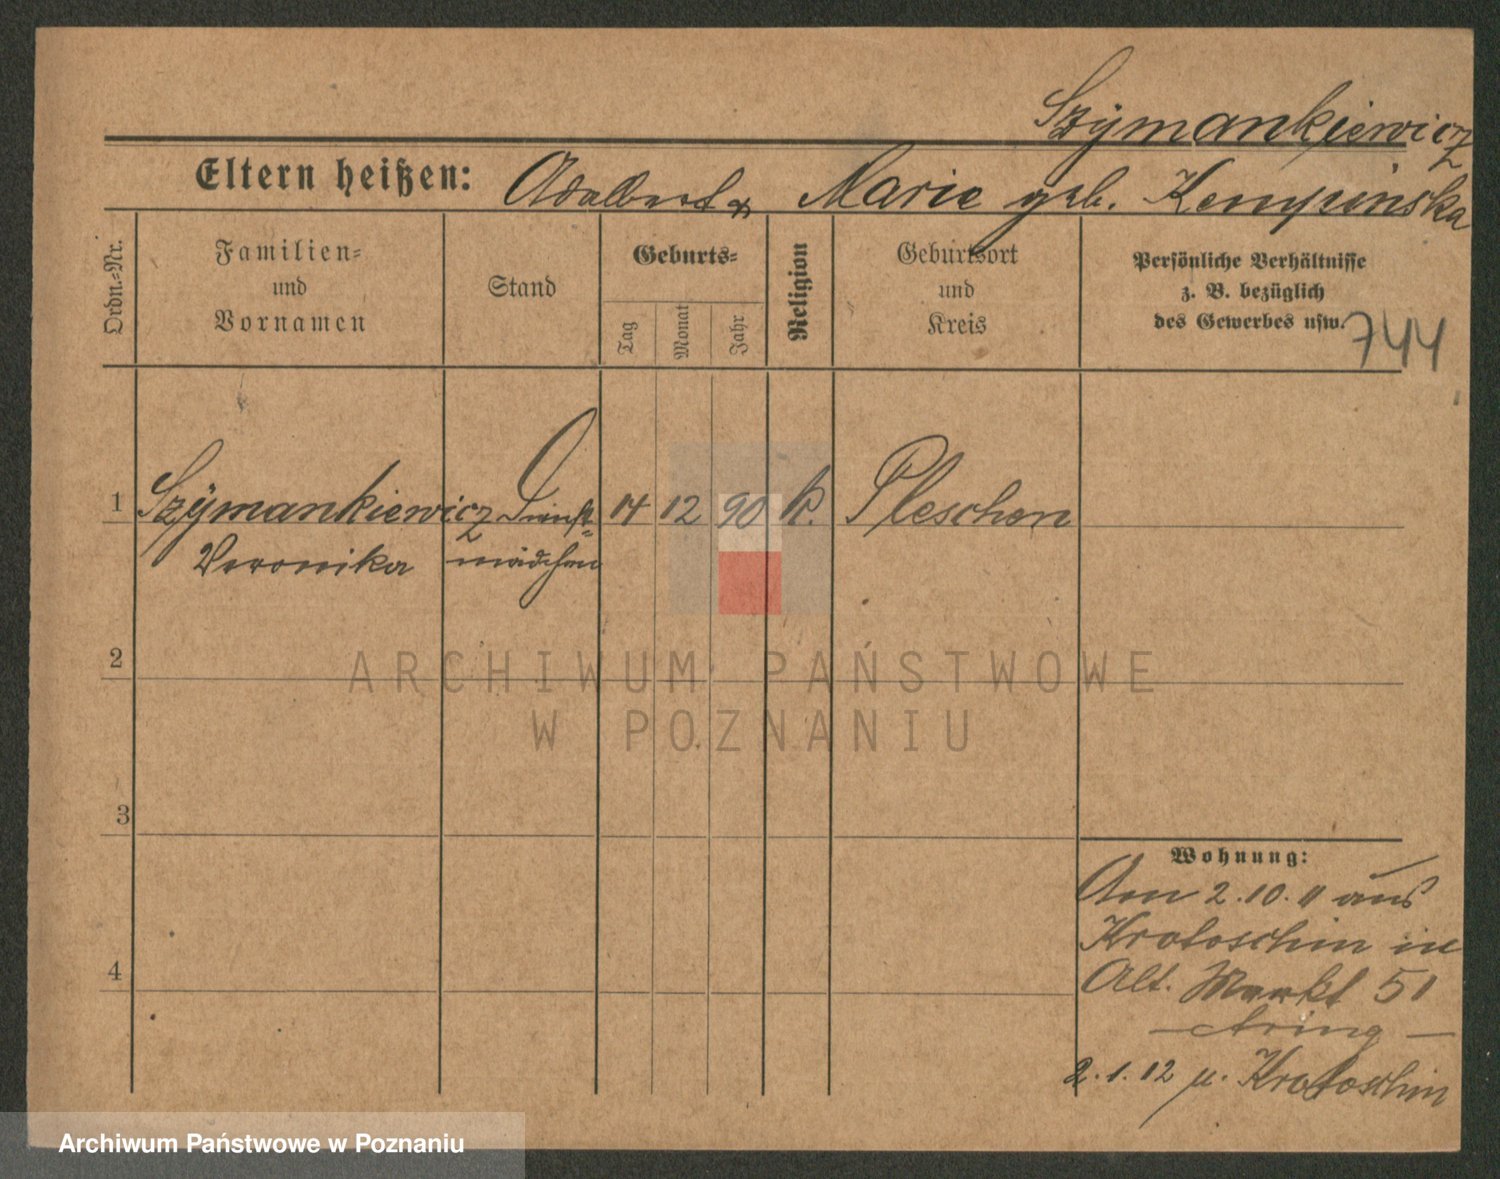 Szÿmankiewicz
Eltern heißen: Adalbert & Marie geb. Kempinska
Ordn.-Nr.
Familien- und Vornamen
Stand
Geburts-
Tag
Monat
Jahr
Religion
Geburtsort und Kreis
Persönliche Verhältnisse
z. B. bezüglich
des Gewerbes usw.
744
1 Szÿmankiewicz Dienst- 14 12 90 k. Pleschen
Veronika mädchen
2
3
4
Wohnung:
Am 2.10.11 aus
Krotoschin in
Alt. Markt 51
2.1.12 n. Krotoschin
ARCHIWUM PAŃSTWOWE
W POZNANIU
Archiwum Państwowe w Poznaniu